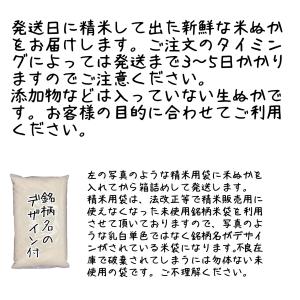 発送日に精米して出た新鮮な米ぬか
をお届けします。ご注文のタイミン
グによっては発送まで3〜5日かかり
ますのでご注意ください。
添加物などは入っていない生ぬかで
す。お客様の目的に合わせてご利用
ください。
銘柄名の
デザイン付
左の写真のような精米用袋に米ぬかを
入れてから箱詰めして発送します。
精米用袋は、法改正等で精米販売用に
使えなくなった未使用銘柄米袋を利用
させて頂いておりますので、写真のよ
うな乳白単色ではなく銘柄名がデザイ
ンがされている米袋になります。不良在
庫で破棄されてしまうには勿体ない未
使用の袋です。ご不理解ください。